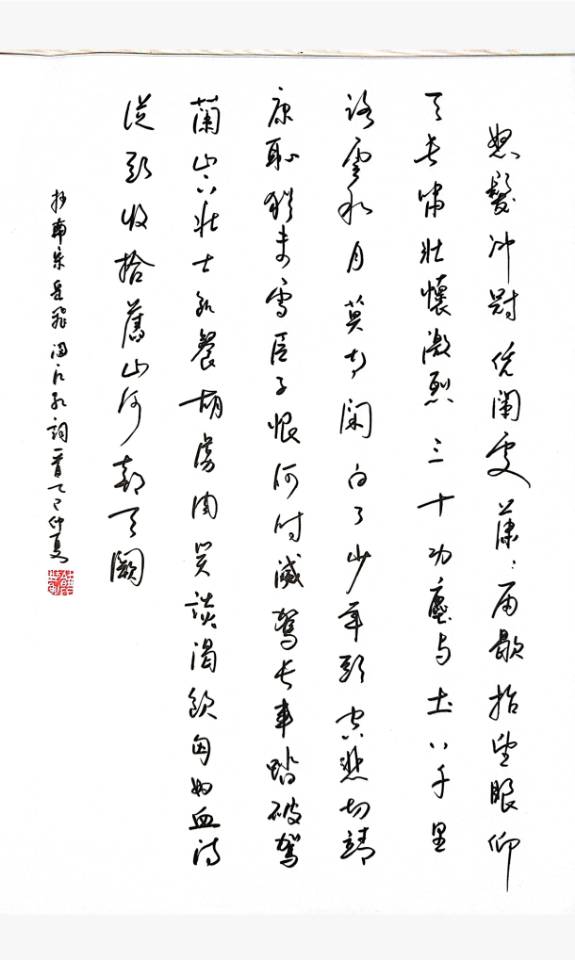 怒髮冲冠凭闌處蕭〻雨歇抬望眼仰
天長啸壮懷激烈三十功塵与土八千里
路雲和月莫等闲白了少年頭空悲切靖
康恥猶未雪臣子恨何时滅驾长車踏破賀
蘭山壮士飢餐胡虏肉笑談渴飲匈奴血待
從頭收拾舊山河朝天闕
抄南宋岳飛满江红詞一首乙巳仲夏